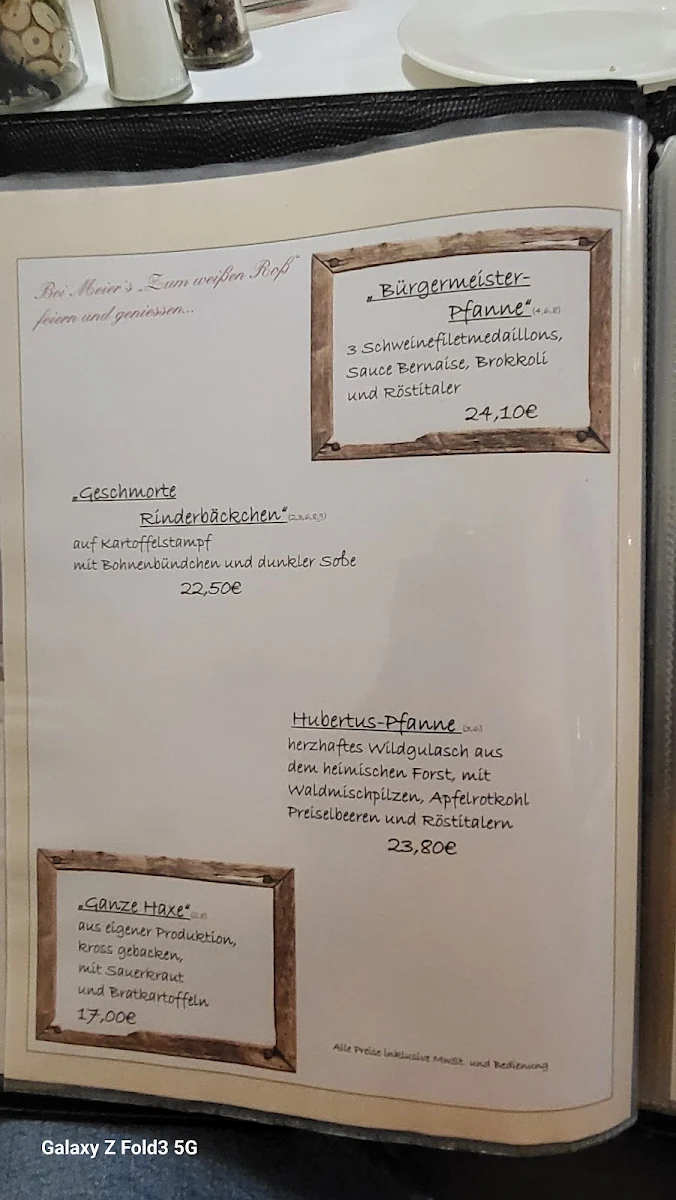 Bei Meier's „Zum weißen Roß"
feiern und geniessen...
„Bürgermeister-
Pfanne" (4,6,8)
3 Schweinefiletmedaillons,
Sauce Bernaise, Brokkoli
und Röstitaler
24,10€
„Geschmorte
Rinderbäckchen" (2,3,6,8,9)
auf Kartoffelstampf
mit Bohnenbündchen und dunkler Soße
22,50€
Hubertus-Pfanne
herzhaftes Wildgulasch aus
dem heimischen Forst, mit
Waldmischpilzen, Apfelrotkohl
Preiselbeeren und Röstitalern
23,80€
„Ganze Haxe"
aus eigener Produktion,
kross gebacken,
mit Sauerkraut
und Bratkartoffeln
17,00€
Alle Preise inklusive MwSt. und Bedienung
Galaxy Z Fold3 5G